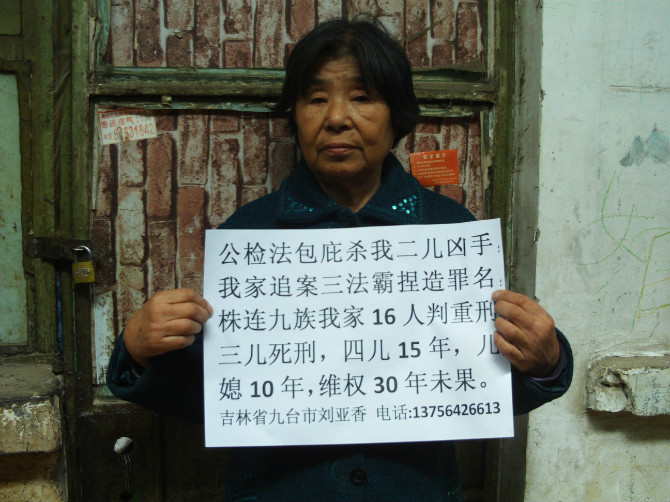 公检法包庇杀我二儿凶手:
我家追案三法霸捏造罪名
株连九族我家 16 人判重刑
三儿死刑，四儿 15 年，儿
媳 10 年,维权 30 年未果。
吉林省九台市刘亚香 电话:13756426613